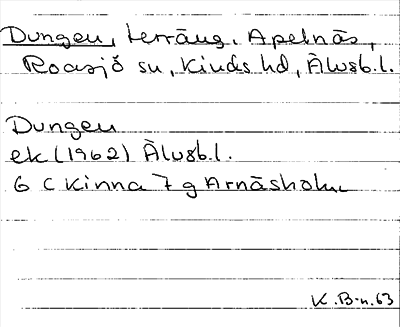 Dungen, terräng, Apelnäs,
Roasjö sn, Kinds hd, Älvsb.l.
Dungen
ek (1962) Älvsb.l.
6 C Kinna 7 g Arnäsholm
K.B-n.63